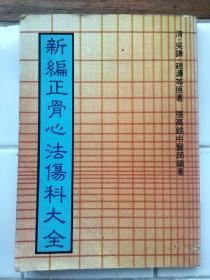 清·吳謙 趙濂等原著 張萬銘中醫師編著
新編正骨心法傷科大全